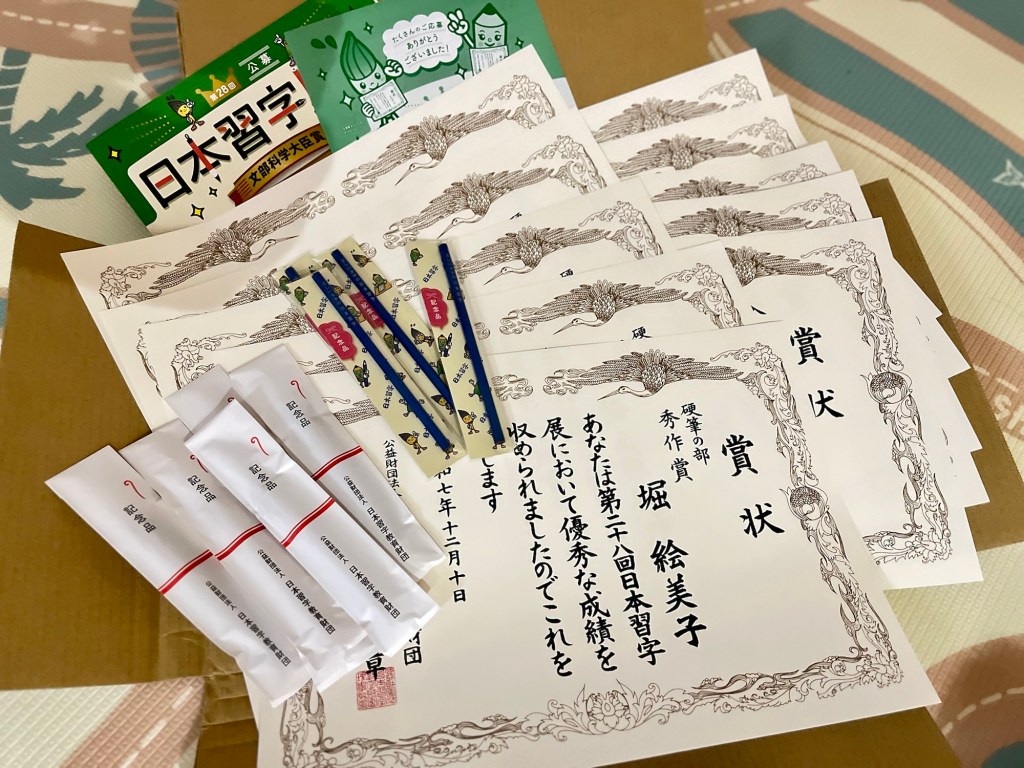 公募
第28回
日本習字
文部科学大臣賞
たくさんのご応募
ありがとう
ございました！
賞状
賞状
硬筆の部
秀作賞
堀 絵美子
あなたは第二十八回日本習字
展において優秀な成績を
収められましたのでこれを
します
和七年十二月十日
公益財団法人
財団
草
硬
硬
硬
日本習字
記念品
日本習字
記念品
日本習字
記念品
日本習字
記念品
公益財団法人 日本習字教育財団
記念品
公益財団法人 日本習字教育財団
記念品
公益財団法人 日本習字教育財団
記念品
公益財団法人 日本習字教育財団